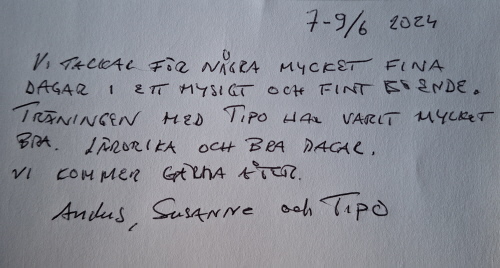 7-9/6 2024
VI TACKAR FÖR NÅGRA MYCKET FINA
DAGAR I ETT MYSIGT OCH FINT BOENDE.
TRÄNINGEN MED TIPO HAR VARIT MYCKET
BRA. LÄRORIKA OCH BRA DAGAR.
VI KOMMER GÄRNA ÅTER.
SUSANNE och TIPO